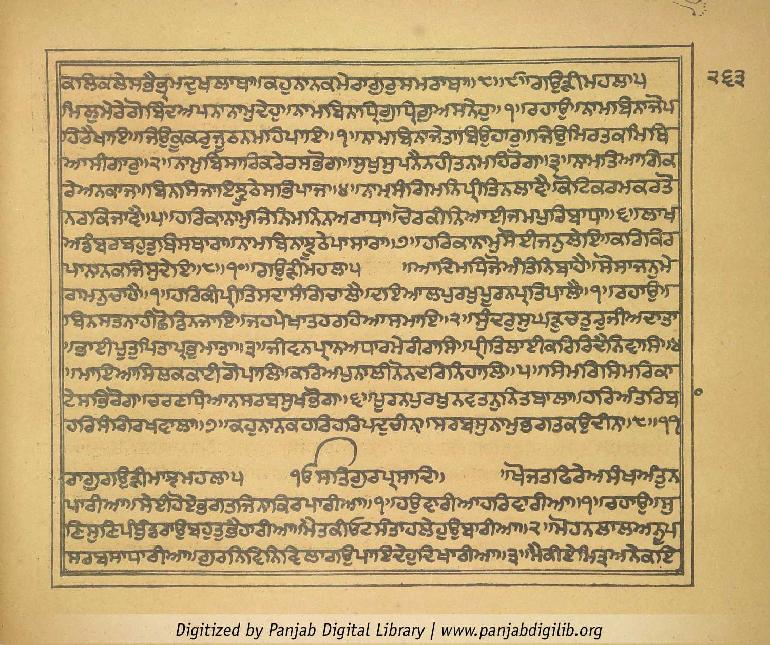 ਕਲਿਕਲੇਸਭੈਭ੍ਰਮਦੁਖਲਾਥਾ॥ਕਹੁਨਾਨਕਮੇਰਾਗੁਰੁਸਮਰਾਥਾ॥੮॥੯॥ਗਉੜੀਮਹਲਾ੫ ੨੬੩
ਮਿਲੁਮੇਰੇਗੋਬਿੰਦਅਪਨਾਨਾਮੁਦੇਹੁ॥ਨਾਮਬਿਨਾਧ੍ਰਿਗੁਧ੍ਰਿਗੁਅਸਨੇਹੁ॥੧॥ਰਹਾਉ॥ਨਾਮਬਿਨਾਜੋਪ
ਹਿਰੈਖਾਇ॥ਜਿਉਕੂਕਰੁਜੂਠਨਮਹਿਪਾਇ॥੧॥ਨਾਮਬਿਨਾਜੇਤਾਬਿਉਹਾਰੁ॥ਜਿਉਮਿਰਤਕਮਿਥਿ
ਆਸੀਗਾਰੁ॥੨॥ਨਾਮੁਬਿਸਾਰਿਕਰੇਰਸਭੋਗ॥ਸੁਖੁਸੁਪਨੈਨਹੀਤਨਮਹਿਰੋਗ॥੩॥ਨਾਮੁਤਿਆਗਿਕ
ਰੇਅਨਕਾਜ॥ਬਿਨਸਿਜਾਇਝੂਠੇਸਭਿਪਾਜ॥੪॥ਨਾਮਸੰਗਿਮਨਿਪ੍ਰੀਤਿਨਲਾਵੈ॥ਕੋਟਿਕਰਮਕਰਤੋ
ਨਰਕਿਜਾਵੈ॥੫॥ਹਰਿਕਾਨਾਮੁਜਿਨਿਮਨਿਨਅਰਾਧਾ॥ਚੋਰਕੀਨਿਆਈਜਮਪੁਰਿਬਾਧਾ॥੬॥ਲਾਖ
ਅਡੰਬਰਬਹੁਤੁਬਿਸਥਾਰਾ॥ਨਾਮਬਿਨਾਝੂਠੇਪਾਸਾਰਾ॥੭॥ਹਰਿਕਾਨਾਮੁਸੋਈਜਨੁਲੇਇ॥ਕਰਿਕਿਰ
ਪਾਨਾਨਕਜਿਸੁਦੇਇ॥੮॥੧੦॥ਗਉੜੀਮਹਲਾ੫ ॥ਆਦਿਮਧਿਜੋਅੰਤਿਨਿਬਾਹੈ॥ਸੋਸਾਜਨੁਮੇ
ਰਾਮਨੁਚਾਹੈ॥੧॥ਹਰਿਕੀਪ੍ਰੀਤਿਸਦਾਸੰਗਿਚਾਲੈ॥ਦਇਆਲਪੁਰਖਪੂਰਨਪ੍ਰਤਿਪਾਲੈ॥੧॥ਰਹਾਉ॥
ਬਿਨਸਤਨਾਹੀਛੋਡਿਨਜਾਇ॥ਜਹਪੇਖਾਤਹਰਹਿਆਸਮਾਇ॥੨॥ਸੁੰਦਰੁਸੁਘੜੁਚਤੁਰੁਜੀਅਦਾਤਾ
॥ਭਾਈਪੂਤੁਪਿਤਾਪ੍ਰਭੁਮਾਤਾ॥੩॥ਜੀਵਨਪ੍ਰਾਨਅਧਾਰਮੇਰੀਰਾਸਿ॥ਪ੍ਰੀਤਿਲਾਈਕਰਿਰਿਦੈਨਿਵਾਸਿ॥੪
॥ਮਾਇਆਸਿਲਕਕਾਟੀਗੋਪਾਲਿ॥ਕਰਿਅਪੁਨਾਲੀਨੋਨਦਰਿਨਿਹਾਲਿ॥੫॥ਸਿਮਰਿਸਿਮਰਿਕਾ
ਟੇਸਭਿਰੋਗ॥ਚਰਣਧਿਆਨਸਰਬਸੁਖਭੋਗ॥੬॥ਪੂਰਨਪੁਰਖੁਨਵਤਨੁਨਿਤਬਾਲਾ॥ਹਰਿਅੰਤਰਿਬਾ
ਹਰਿਸੰਗਿਰਖਵਾਲਾ॥੭॥ਕਹੁਨਾਨਕਹਰਿਹਰਿਪਦੁਚੀਨ॥ਸਰਬਸੁਨਾਮੁਭਗਤਕਉਦੀਨ॥੮॥੧੧
ਰਾਗੁਗਉੜੀਮਾਝਮਹਲਾ੫ ੴਸਤਿਗੁਰਪ੍ਰਸਾਦਿ॥ ॥ਖੋਜਤਫਿਰੇਅਸੰਖਅੰਤੁਨ
ਪਾਰੀਆ॥ਸੇਈਹੋਏਭਗਤਜਿਨਾਕਿਰਪਾਰੀਆ॥੧॥ਹਉਵਾਰੀਆਹਰਿਵਾਰੀਆ॥੧॥ਰਹਾਉ॥ਸੁ
ਣਿਸੁਣਿਪੰਥੁਡਰਾਉਬਹੁਤੁਭੈਹਾਰੀਆ॥ਮੈਤਕੀਓਟਸੰਤਾਹਲੇਹੁਉਬਾਰੀਆ॥੨॥ਮੋਹਨਲਾਲਅਨੂਪ
ਸਰਬਸਾਧਾਰੀਆ॥ਗੁਰਨਿਵਿਨਿਵਿਲਾਗਉਪਾਇਦੇਹੁਦਿਖਾਰੀਆ॥੩॥ਮੈਕੀਏਮਿਤ੍ਰਅਨੇਕਇ
Digitized by Panjab Digital Library | www.panjabdigilib.org